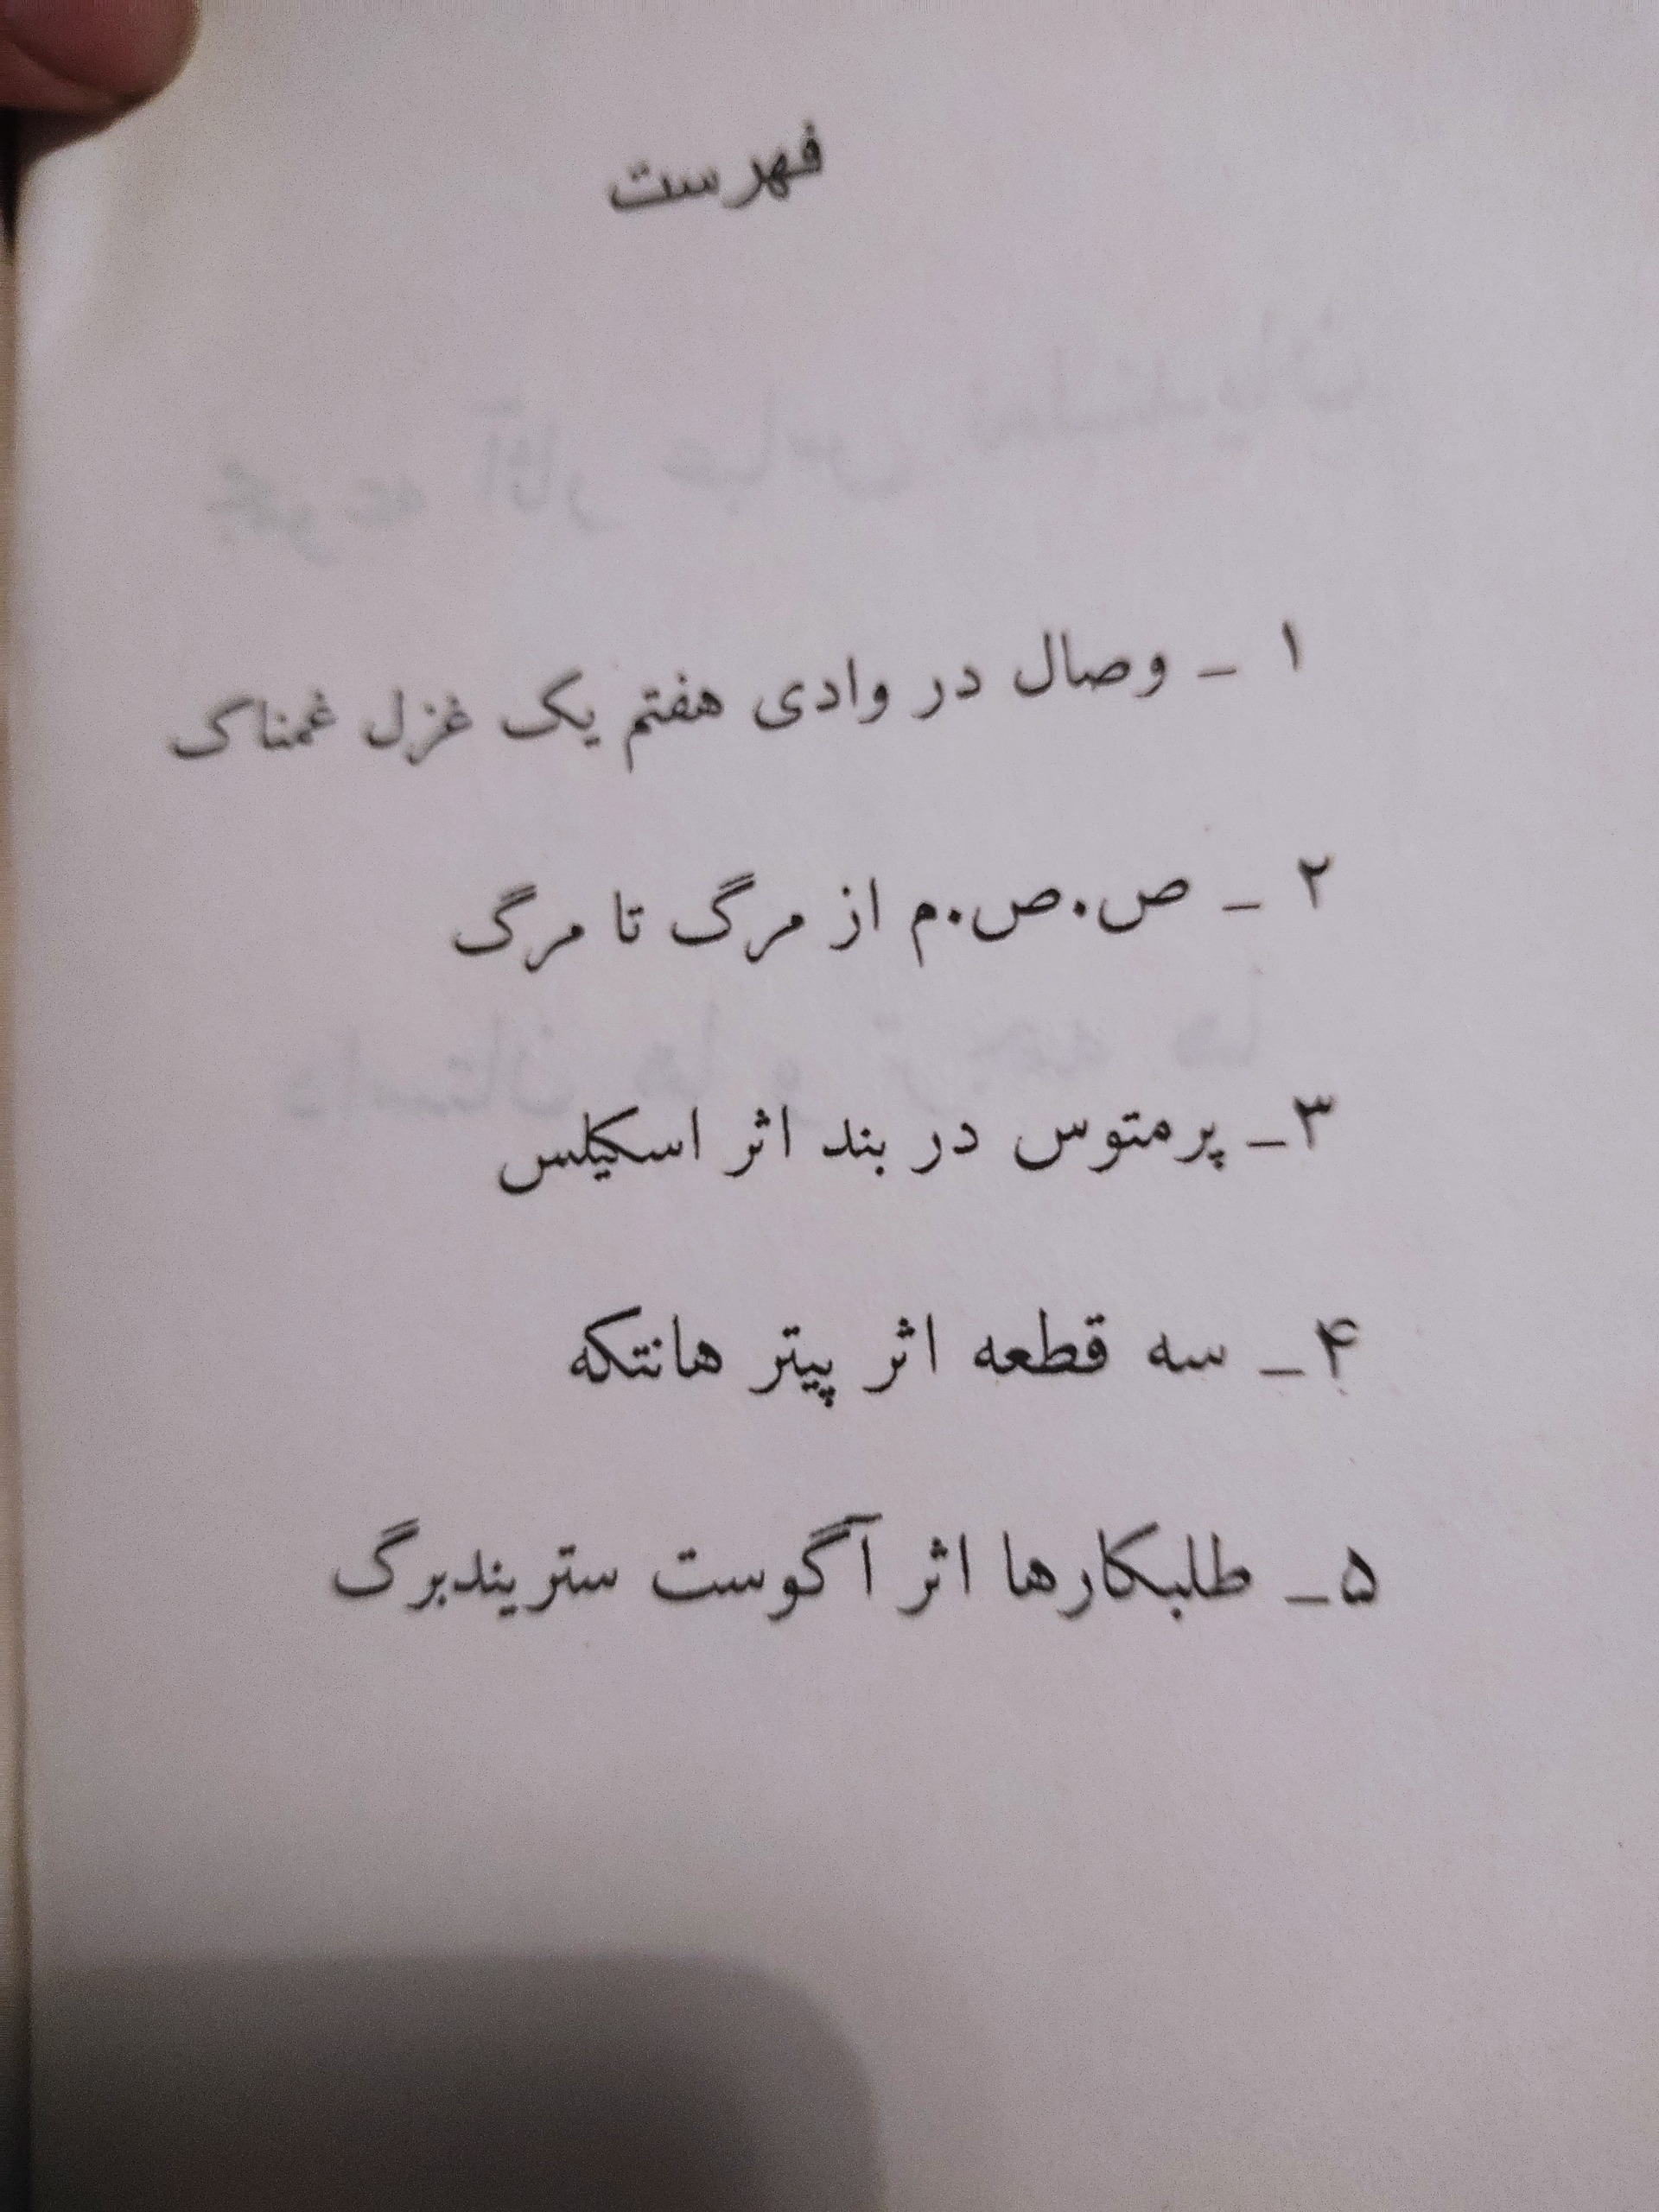 فهرست
۱ - وصال در وادی هفتم یک غزل غمناک
۲ - ص.ص.م از مرگ تا مرگ
۳- پرمتوس در بند اثر اسکیلس
۴- سه قطعه اثر پیتر هانتکه
۵- طلبکارها اثر آگوست ستریندبرگ